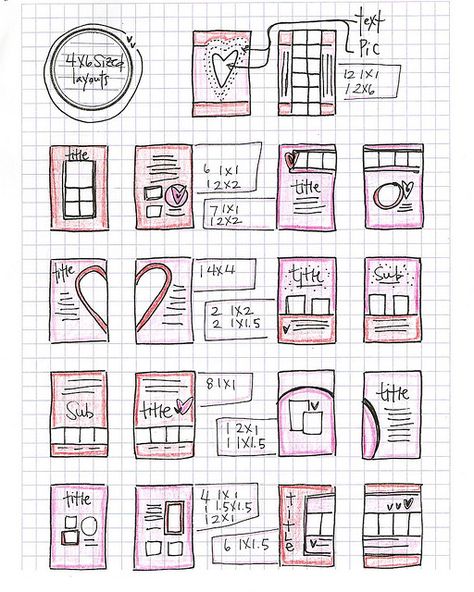 4x6 Sized
layouts
text
Pic
12 1x1
1 2x6
title
6 1x1
1 2x2
7 1x1
1 2x2
title
title
1 4x4
2 1x2
2 1x1.5
title
Sub
Sub
title
8 1x1
1 2x1
1 1x1.5
title
title
4 1x1
1 1.5x1.5
1 2x1
6 1x1.5
TITLE